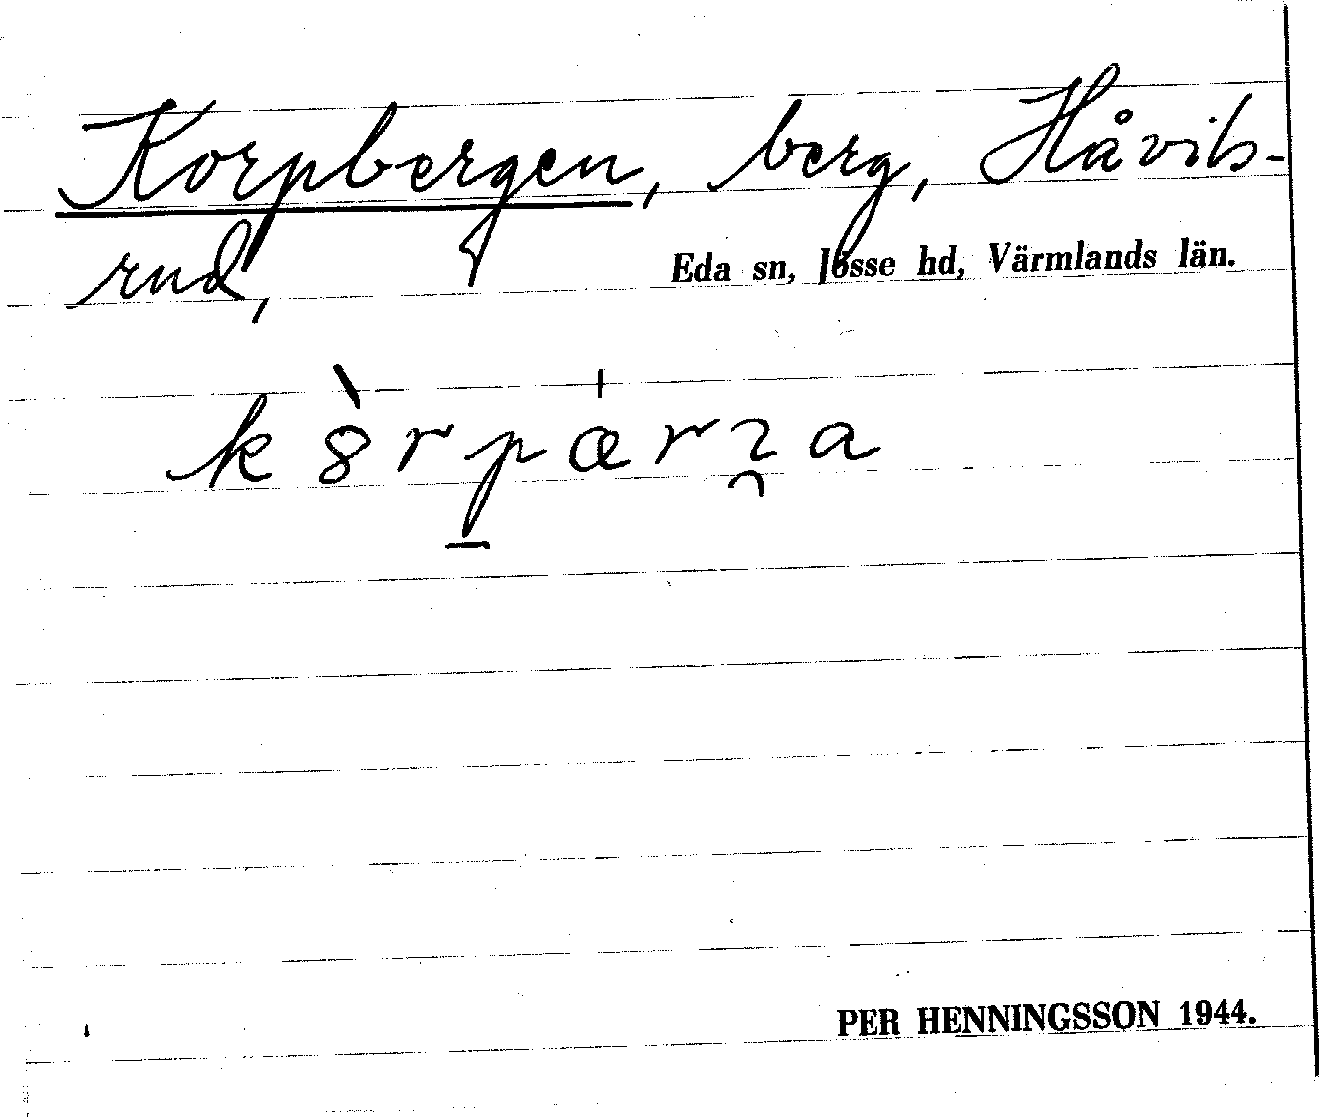 Korpbergen, berg, Håvils-
rud,
Eda sn, Jösse hd, Värmlands län.
k8̀rp̱ærʒa
PER HENNINGSSON 1944.